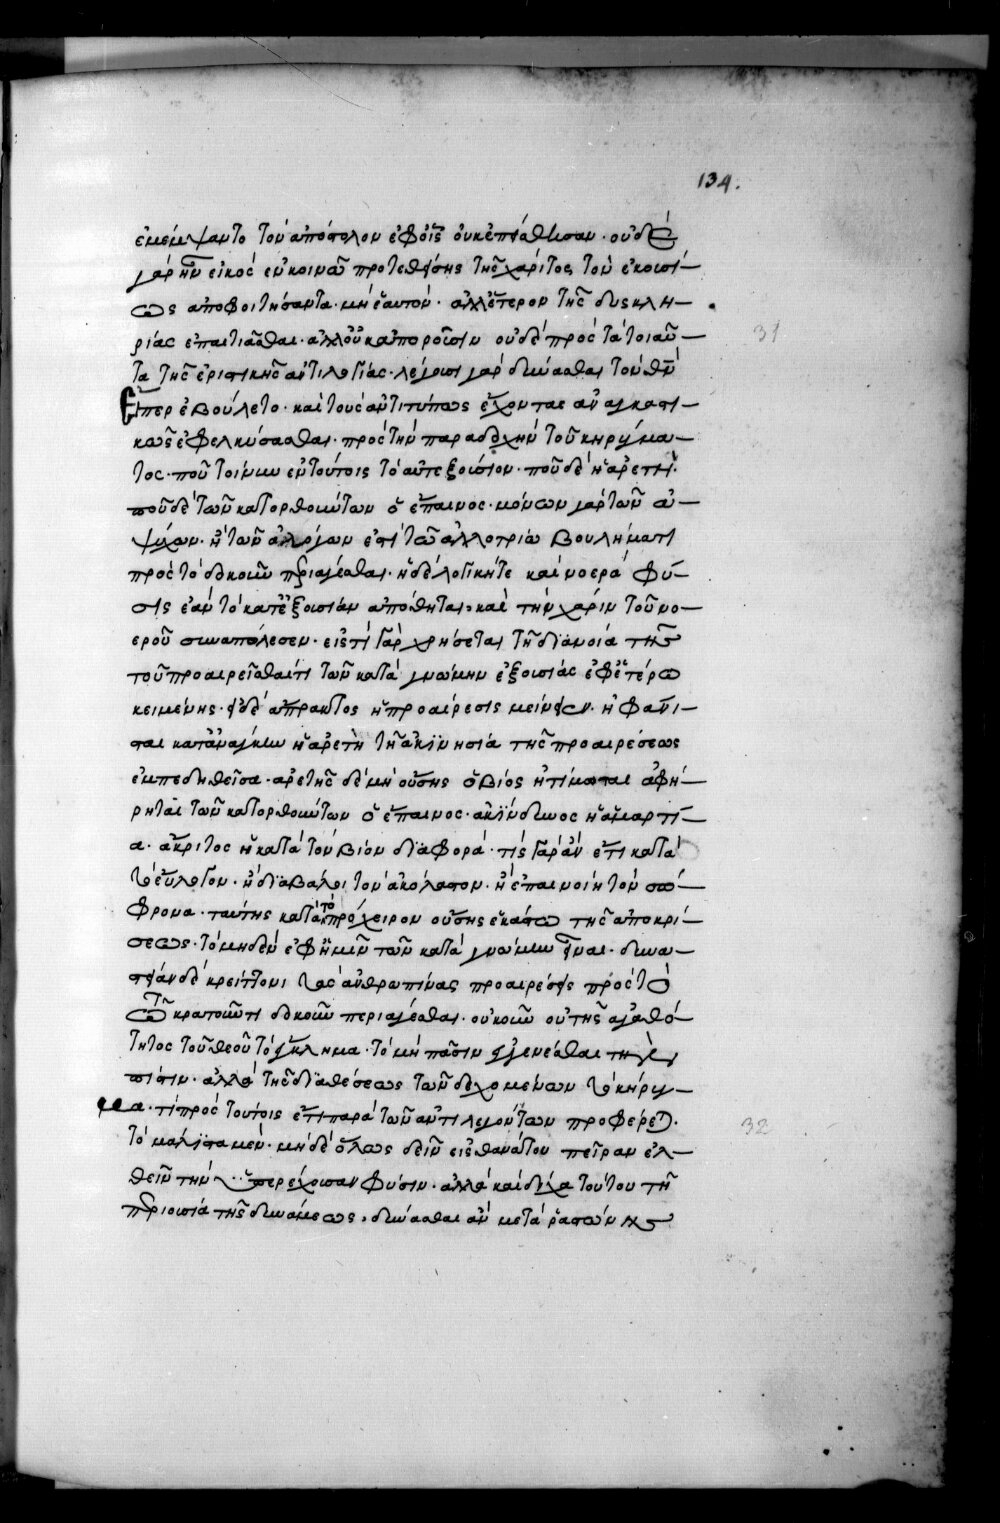 134.
ἐμέμψαντο τὸν ἀπόστολον ἐφ' οἷς οὐκ ἐπιάσθησαν. οὐδὲ
γὰρ ἦν εἰκὸς ἐν κοινῷ προτεθείσης τῆς χάριτος τὸν ἑκουσί-
ως ἀποφοιτήσαντα. μὴ ἑαυτὸν. ἀλλ' ἕτερον τῆς δυσκλη-
ρίας ἐπαιτιᾶσθαι. ἀλλ' οὐκ ἀποροῦσιν οὐδὲ πρὸς τὰ τοιαῦ-
τα τῆς ἐριστικῆς ἀντιλογίας. λέγουσι γὰρ δύνασθαι τὸν θν
εἴπερ ἐβούλετο. καὶ τοὺς ἀντιτύπως ἔχοντας ἀναγκαστι-
κῶς ἐφελκύσασθαι. πρὸς τὴν παραδοχὴν τοῦ κηρύγμα-
τος. ποῦ τοίνυν ἐν τούτοις τὸ αὐτεξούσιον. ποῦ δὲ ἡ ἀρετή.
ποῦ δὲ τῶν κατορθούντων ὁ ἔπαινος. μόνων γὰρ τῶν ἀ-
ψύχων. ἢ τῶν ἀλόγων ἐστὶ τῷ ἀλλοτρίῳ βουλήματι
πρὸς τὸ δοκοῦν περιάγεσθαι. ἡ δὲ λογική τε καὶ νοερὰ φύ-
σις ἐὰν τὸ κατ' ἐξουσίαν ἀπόθηται, καὶ τὴν χάριν τοῦ νο-
εροῦ συναπόλεσεν. εἰς τί γὰρ χρήσεται τῇ διανοίᾳ τῆς
τοῦ προαιρεῖσθαί τι τῶν κατὰ γνώμην ἐξουσίας ἐφ' ἑτέρῳ
κειμένης. εἰ δὲ ἄπρακτος ἡ προαίρεσις μείνειεν. ἠφάνι-
σται κατ' ἀνάγκην ἡ ἀρετὴ τῇ ἀκινησίᾳ τῆς προαιρέσεως
ἐμπεδηθεῖσα. ἀρετῆς δὲ μὴ οὔσης ὁ βίος ἠτίμωται ἀφή-
ρηται τῶν κατορθούντων ὁ ἔπαινος. ἀκίνδυνος ἡ ἁμαρτί-
α. ἄκριτος ἡ κατὰ τὸν βίον διαφορά. τίς γὰρ ἂν ἔτι κατὰ
τὸ εὔλογον. ἢ διαβάλοι τὸν ἀκόλαστον. ἢ ἐπαινοίη τὸν σώ-
φρονα. ταύτης κατὰ τὸ πρόχειρον οὔσης ἑκάστῳ τῆς ἀποκρί-
σεως. τὸ μηδὲν ἐφ' ἡμῖν τῶν κατὰ γνώμην εἶναι. δυνα-
στείᾳ δὲ κρείττονι τὰς ἀνθρωπίνας προαιρέσεις πρὸς τὸ
τῷ κρατοῦντι δοκοῦν περιάγεσθαι. οὐκοῦν οὐ τῆς ἀγαθό-
τητος τοῦ θεοῦ τὸ ἔγκλημα. τὸ μὴ πᾶσιν ἐγγενέσθαι τὴν
πίστιν. ἀλλὰ τῆς διαθέσεως τῶν δεχομένων τὸ κήρυγ-
μα. τί πρὸς τούτοις ἔτι παρὰ τῶν ἀντιλεγόντων προφέρεται.
τὸ μάλιστα μὲν. μηδὲ ὅλως δεῖν εἰς θανάτου πεῖραν ἐλ-
θεῖν τὴν ὑπερέχουσαν φύσιν. ἀλλὰ καὶ δίχα τούτου τῇ
περιουσίᾳ τῆς δυνάμεως, δύνασθαι ἂν μετὰ ῥᾳστώνης
31
32